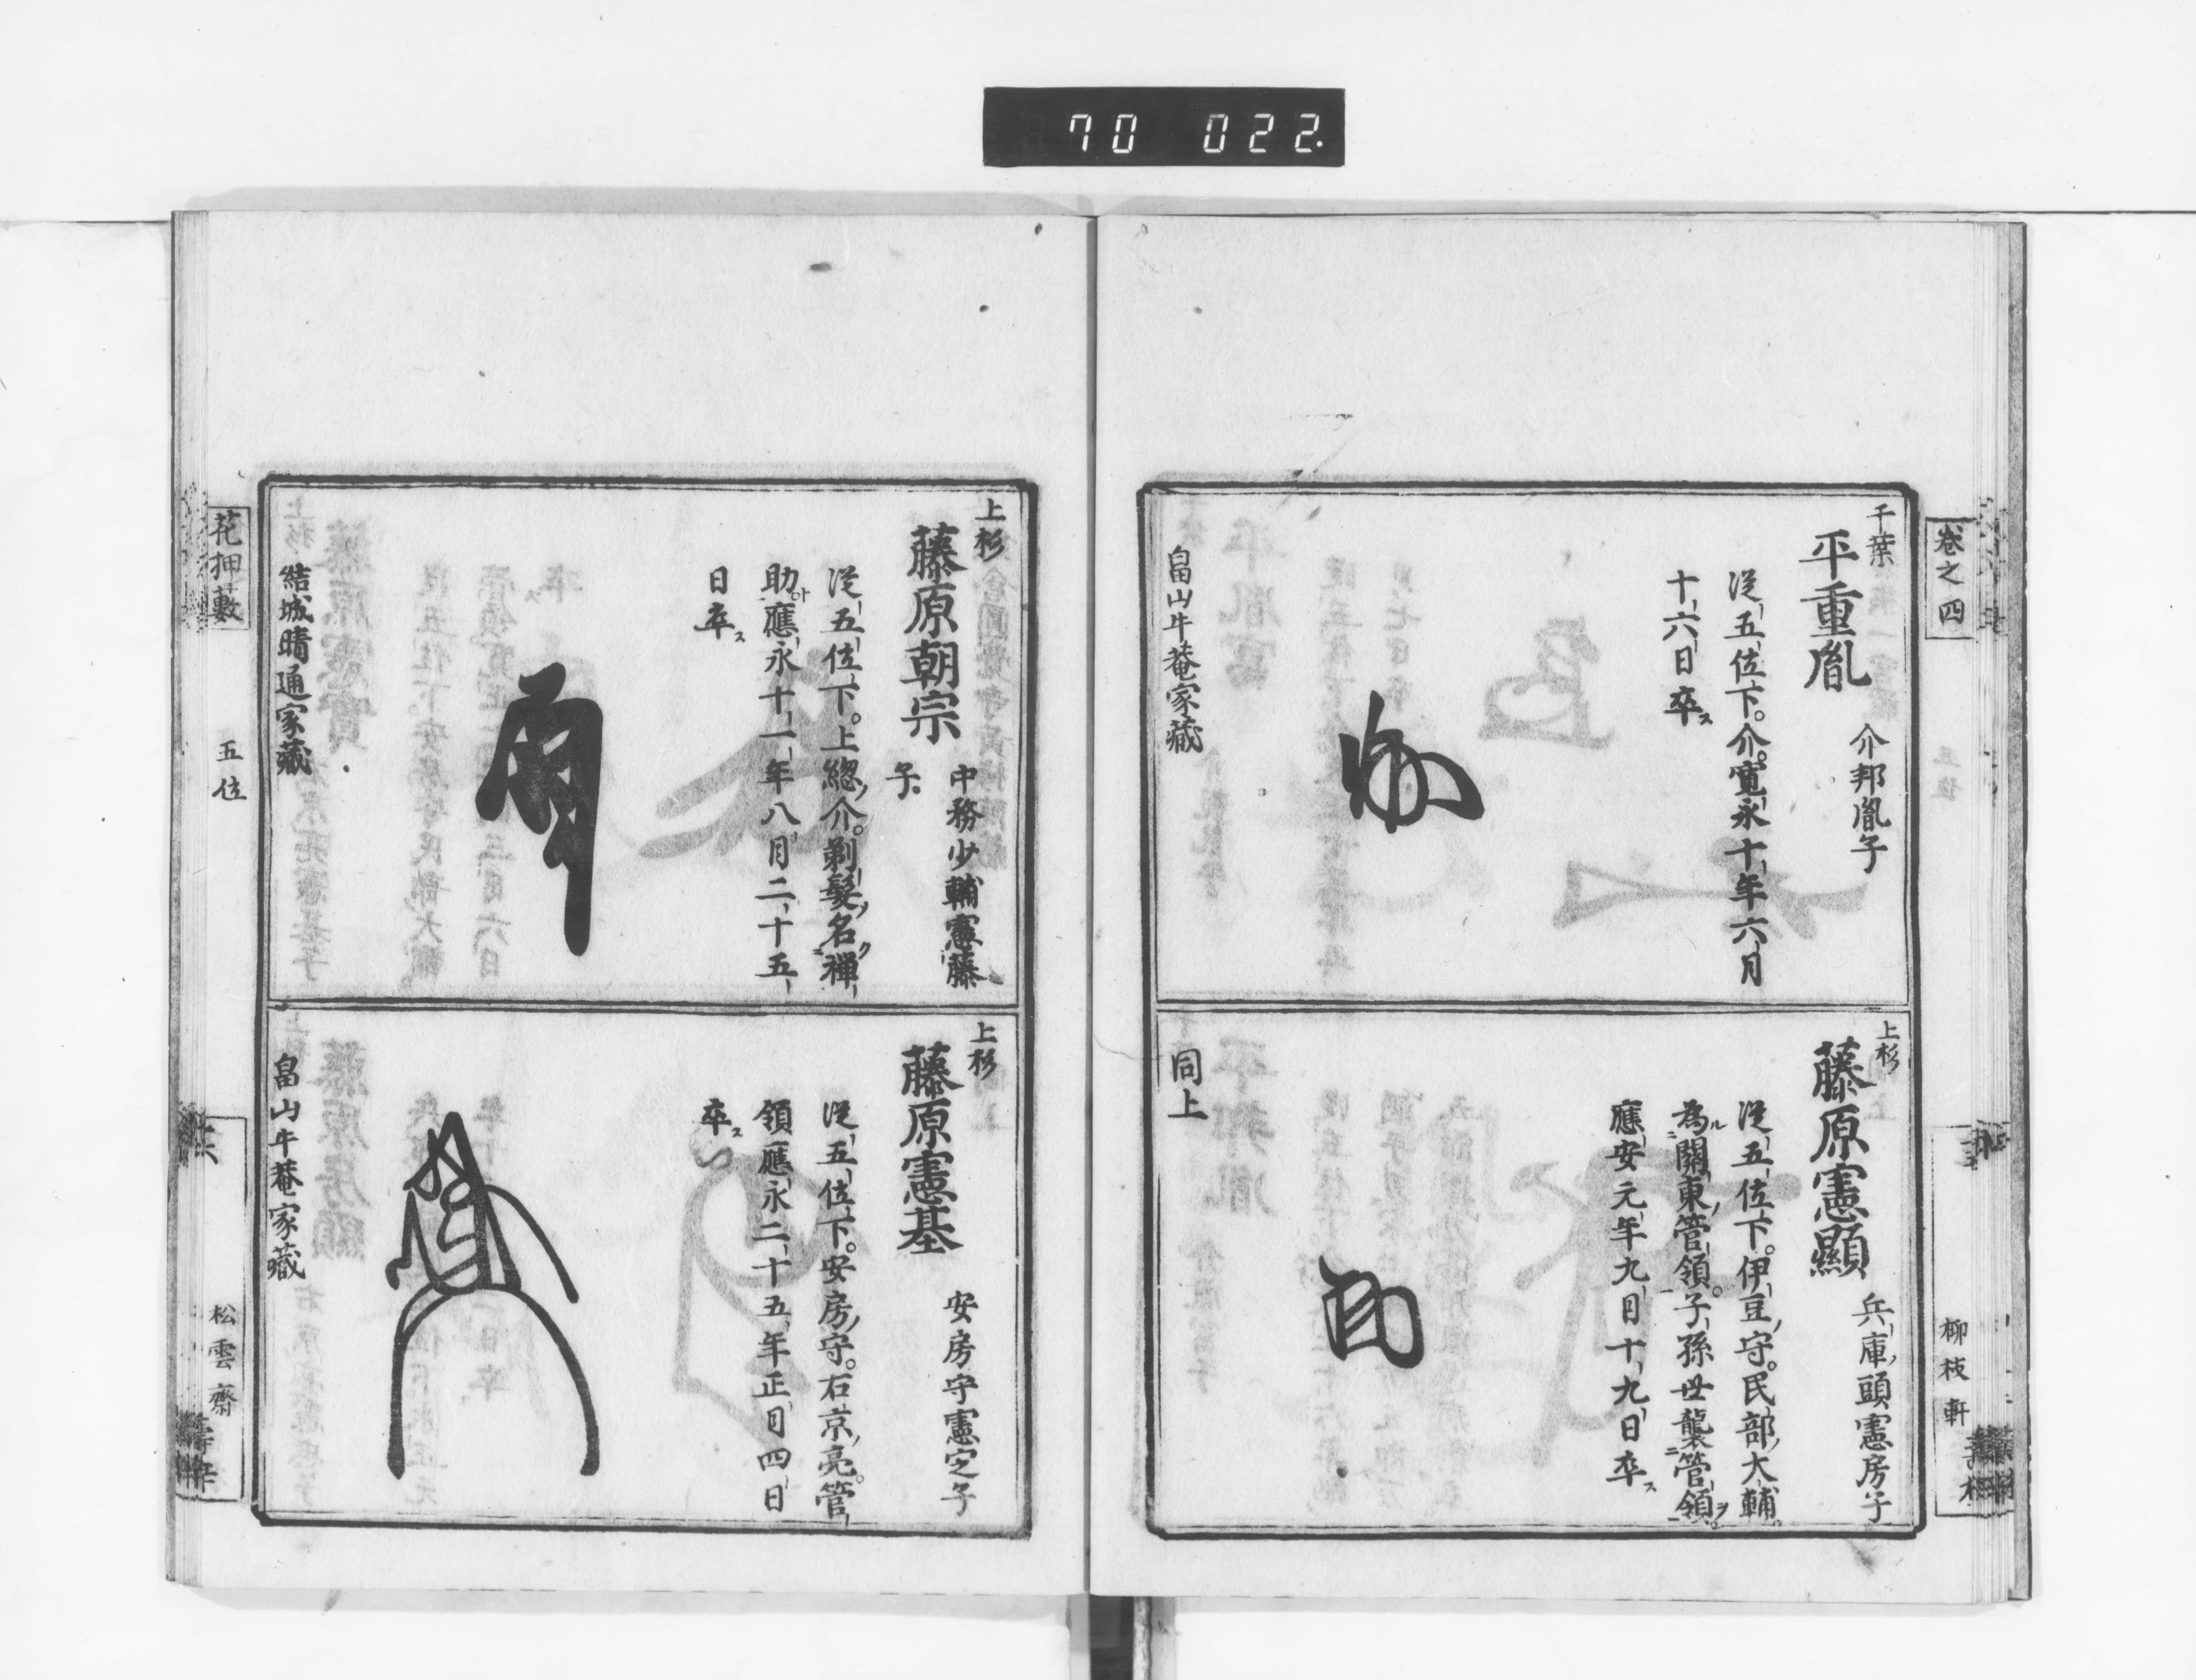 70 022.
卷之四
柳枝軒
千葉
平重胤
介邦胤子
從五位下。介。寬永十年六月
十六日卒ス
畠山牛菴家藏
上杉
藤原憲顯
兵庫頭憲房子
從五位下。伊豆守。民部大輔。
為ル關東管領。子孫世襲ニ管領ヲ。
應安元年九月十九日卒ス
同上
上杉
藤原朝宗
中務少輔憲藤
子
從五位下。上總介。剃髮名ク禅
助ト應永十一年八月二十五
日卒ス
結城晴通家藏
上杉
藤原憲基
安房守憲定子
從五位下。安房守。右京亮。管
領應永二十五年正月四日
卒ス
畠山牛菴家藏
花押藪
五位
松雲齋